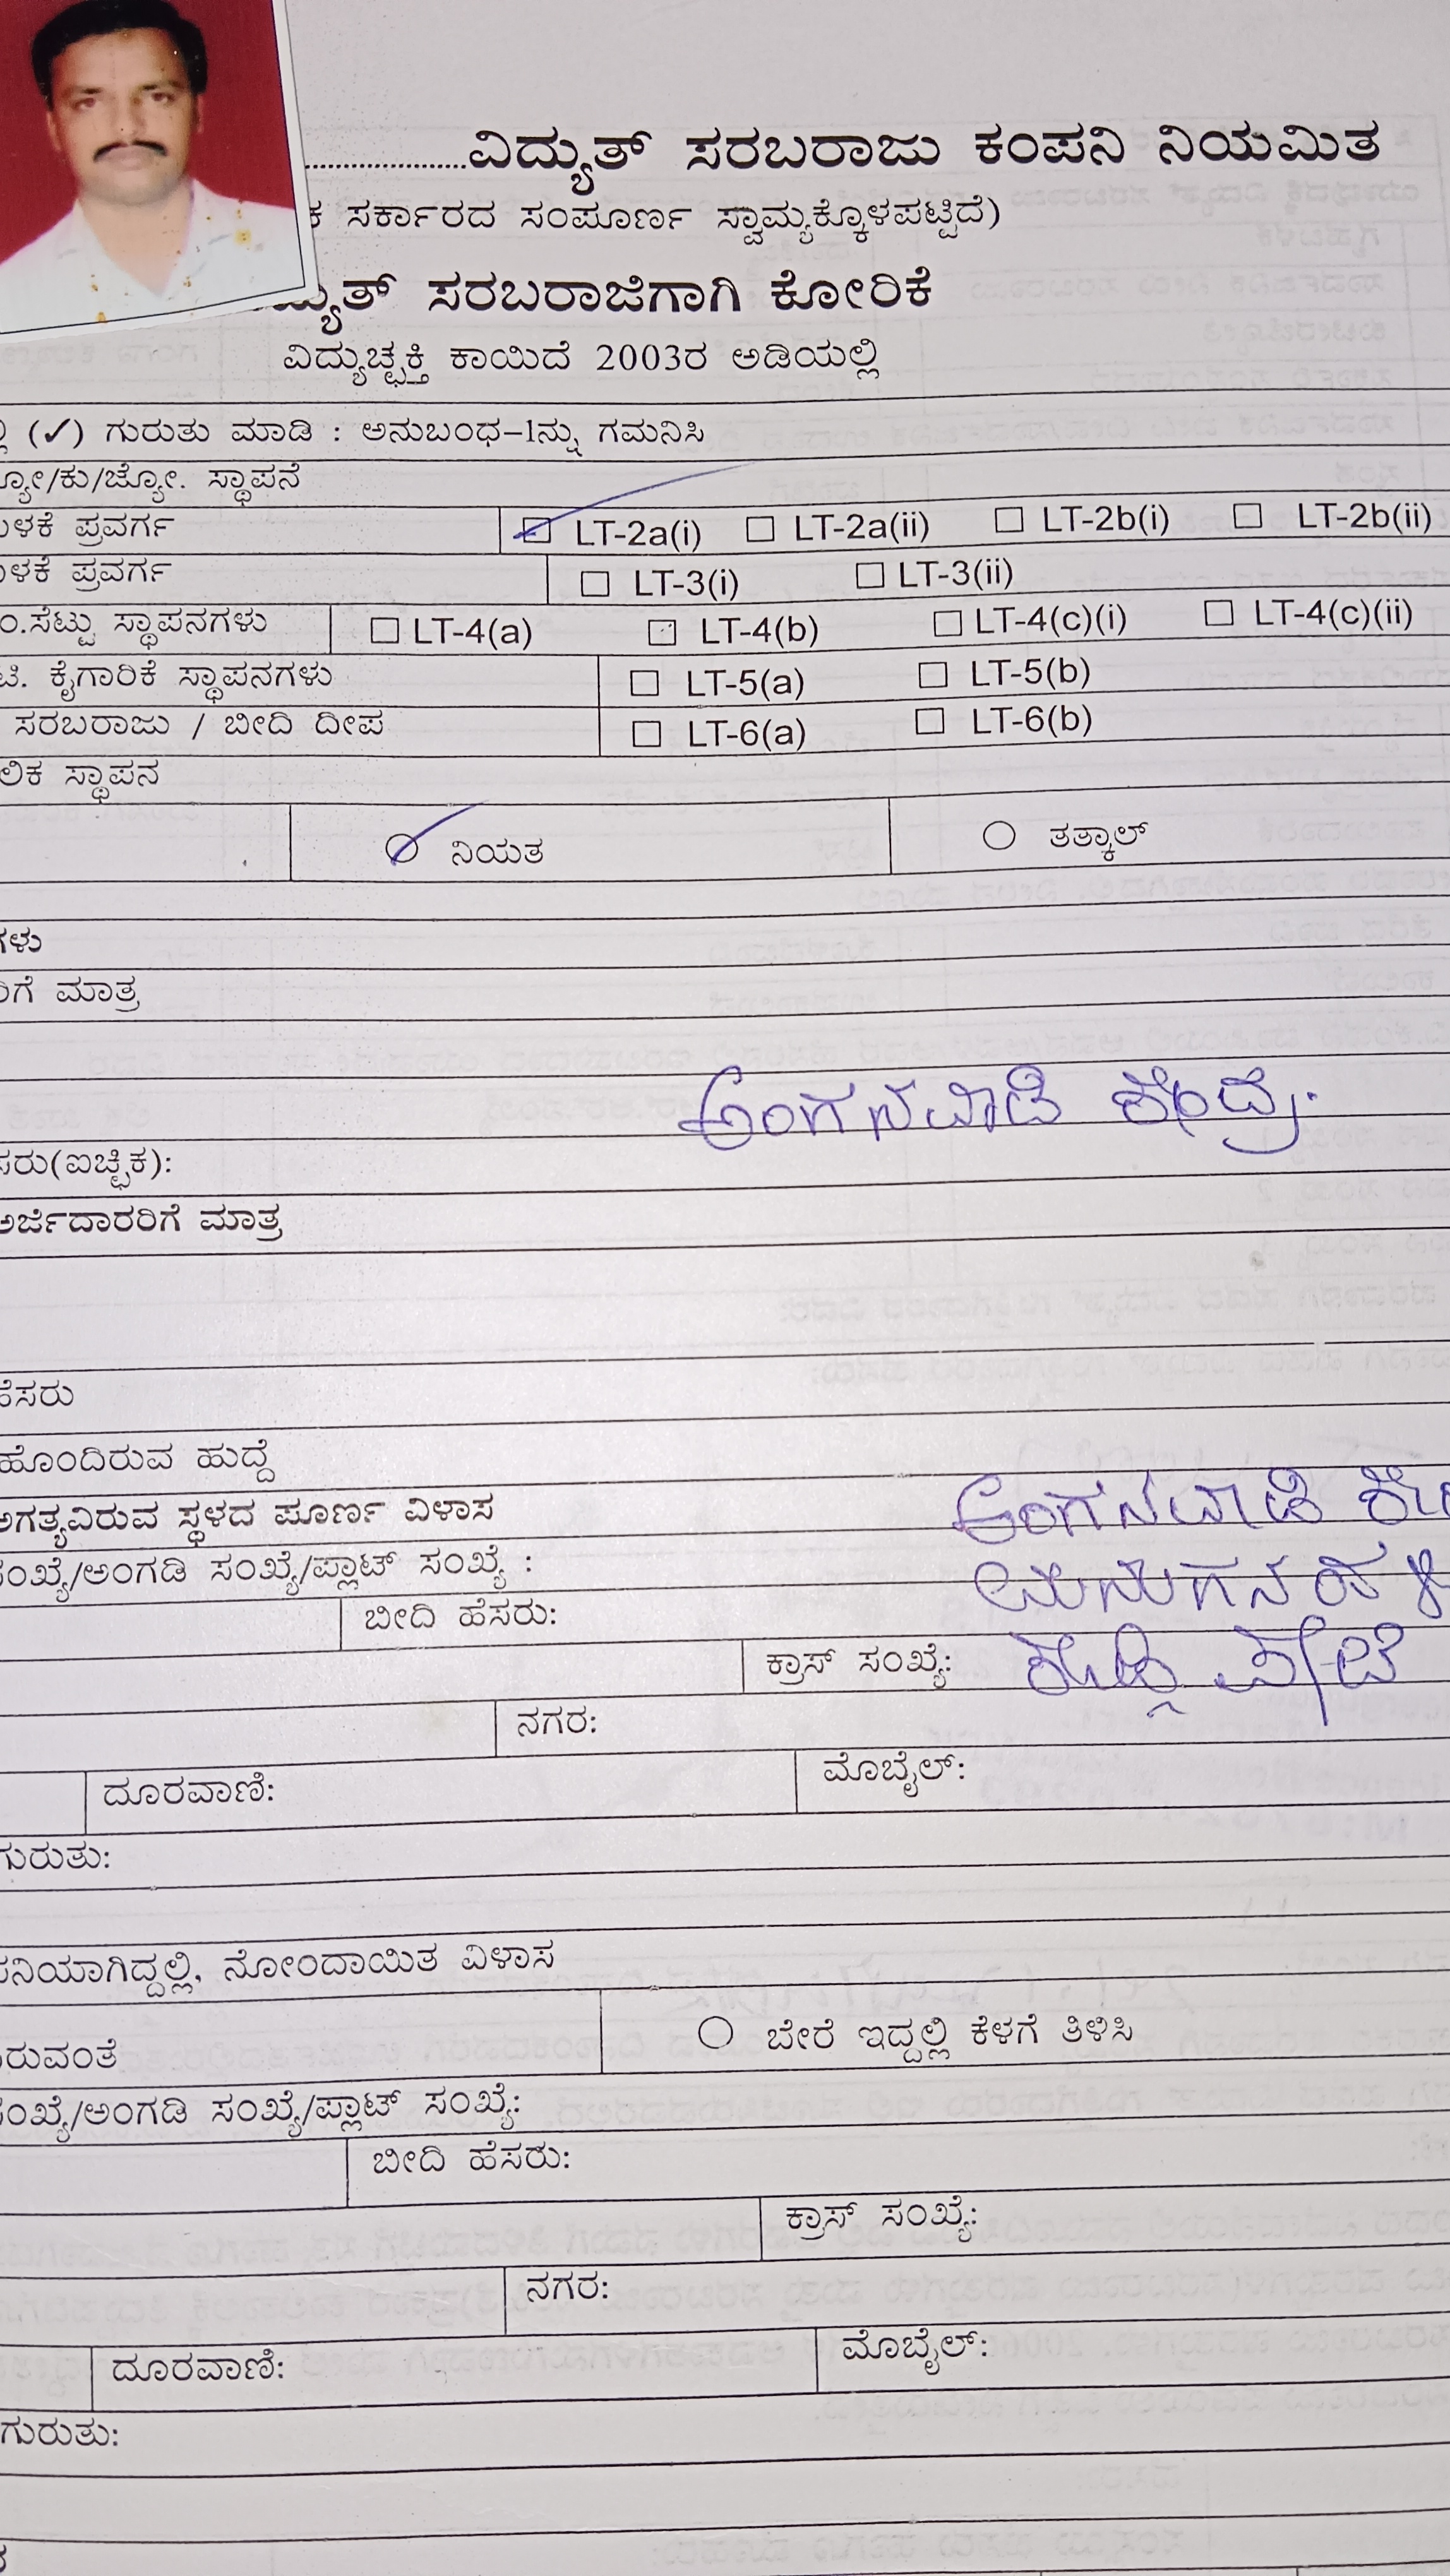 ..................ವಿದ್ಯುತ್ ಸರಬರಾಜು ಕಂಪನಿ ನಿಯಮಿತ
ಕ ಸರ್ಕಾರದ ಸಂಪೂರ್ಣ ಸ್ವಾಮ್ಯಕ್ಕೊಳಪಟ್ಟಿದೆ)
ದ್ಯುತ್ ಸರಬರಾಜಿಗಾಗಿ ಕೋರಿಕೆ
ವಿದ್ಯುಚ್ಛಕ್ತಿ ಕಾಯಿದೆ 2003ರ ಅಡಿಯಲ್ಲಿ
ಲ್ಲಿ (✓) ಗುರುತು ಮಾಡಿ : ಅನುಬಂಧ–1ನ್ನು ಗಮನಿಸಿ
ಜ್ಯೋ/ಕು/ಜ್ಯೋ. ಸ್ಥಾಪನೆ
ಬಳಕೆ ಪ್ರವರ್ಗ LT-2a(i) LT-2a(ii) LT-2b(i) LT-2b(ii)
ಬಳಕೆ ಪ್ರವರ್ಗ LT-3(i) LT-3(ii)
ಂ.ಸೆಟ್ಟು ಸ್ಥಾಪನಗಳು LT-4(a) LT-4(b) LT-4(c)(i) LT-4(c)(ii)
ಟಿ. ಕೈಗಾರಿಕೆ ಸ್ಥಾಪನಗಳು LT-5(a) LT-5(b)
ಸರಬರಾಜು / ಬೀದಿ ದೀಪ LT-6(a) LT-6(b)
ಲಿಕ ಸ್ಥಾಪನ
ನಿಯತ ತತ್ಕಾಲ್
ಗಳು
ರಿಗೆ ಮಾತ್ರ
ಅಂಗನವಾಡಿ ಕೇಂದ್ರ.
ಸರು(ಐಚ್ಛಿಕ):
ಅರ್ಜಿದಾರರಿಗೆ ಮಾತ್ರ
ಹೆಸರು
ಹೊಂದಿರುವ ಹುದ್ದೆ
ಅಗತ್ಯವಿರುವ ಸ್ಥಳದ ಪೂರ್ಣ ವಿಳಾಸ ಅಂಗನವಾಡಿ
ಸಂಖ್ಯೆ/ಅಂಗಡಿ ಸಂಖ್ಯೆ/ಪ್ಲಾಟ್ ಸಂಖ್ಯೆ :
ಬೀದಿ ಹೆಸರು:
ಕ್ರಾಸ್ ಸಂಖ್ಯೆ:
ನಗರ:
ದೂರವಾಣಿ: ಮೊಬೈಲ್:
ಗುರುತು:
ಪನಿಯಾಗಿದ್ದಲ್ಲಿ, ನೋಂದಾಯಿತ ವಿಳಾಸ
ರುವಂತೆ ಬೇರೆ ಇದ್ದಲ್ಲಿ ಕೆಳಗೆ ತಿಳಿಸಿ
ಸಂಖ್ಯೆ/ಅಂಗಡಿ ಸಂಖ್ಯೆ/ಪ್ಲಾಟ್ ಸಂಖ್ಯೆ:
ಬೀದಿ ಹೆಸರು:
ಕ್ರಾಸ್ ಸಂಖ್ಯೆ:
ನಗರ:
ದೂರವಾಣಿ: ಮೊಬೈಲ್:
ಗುರುತು: